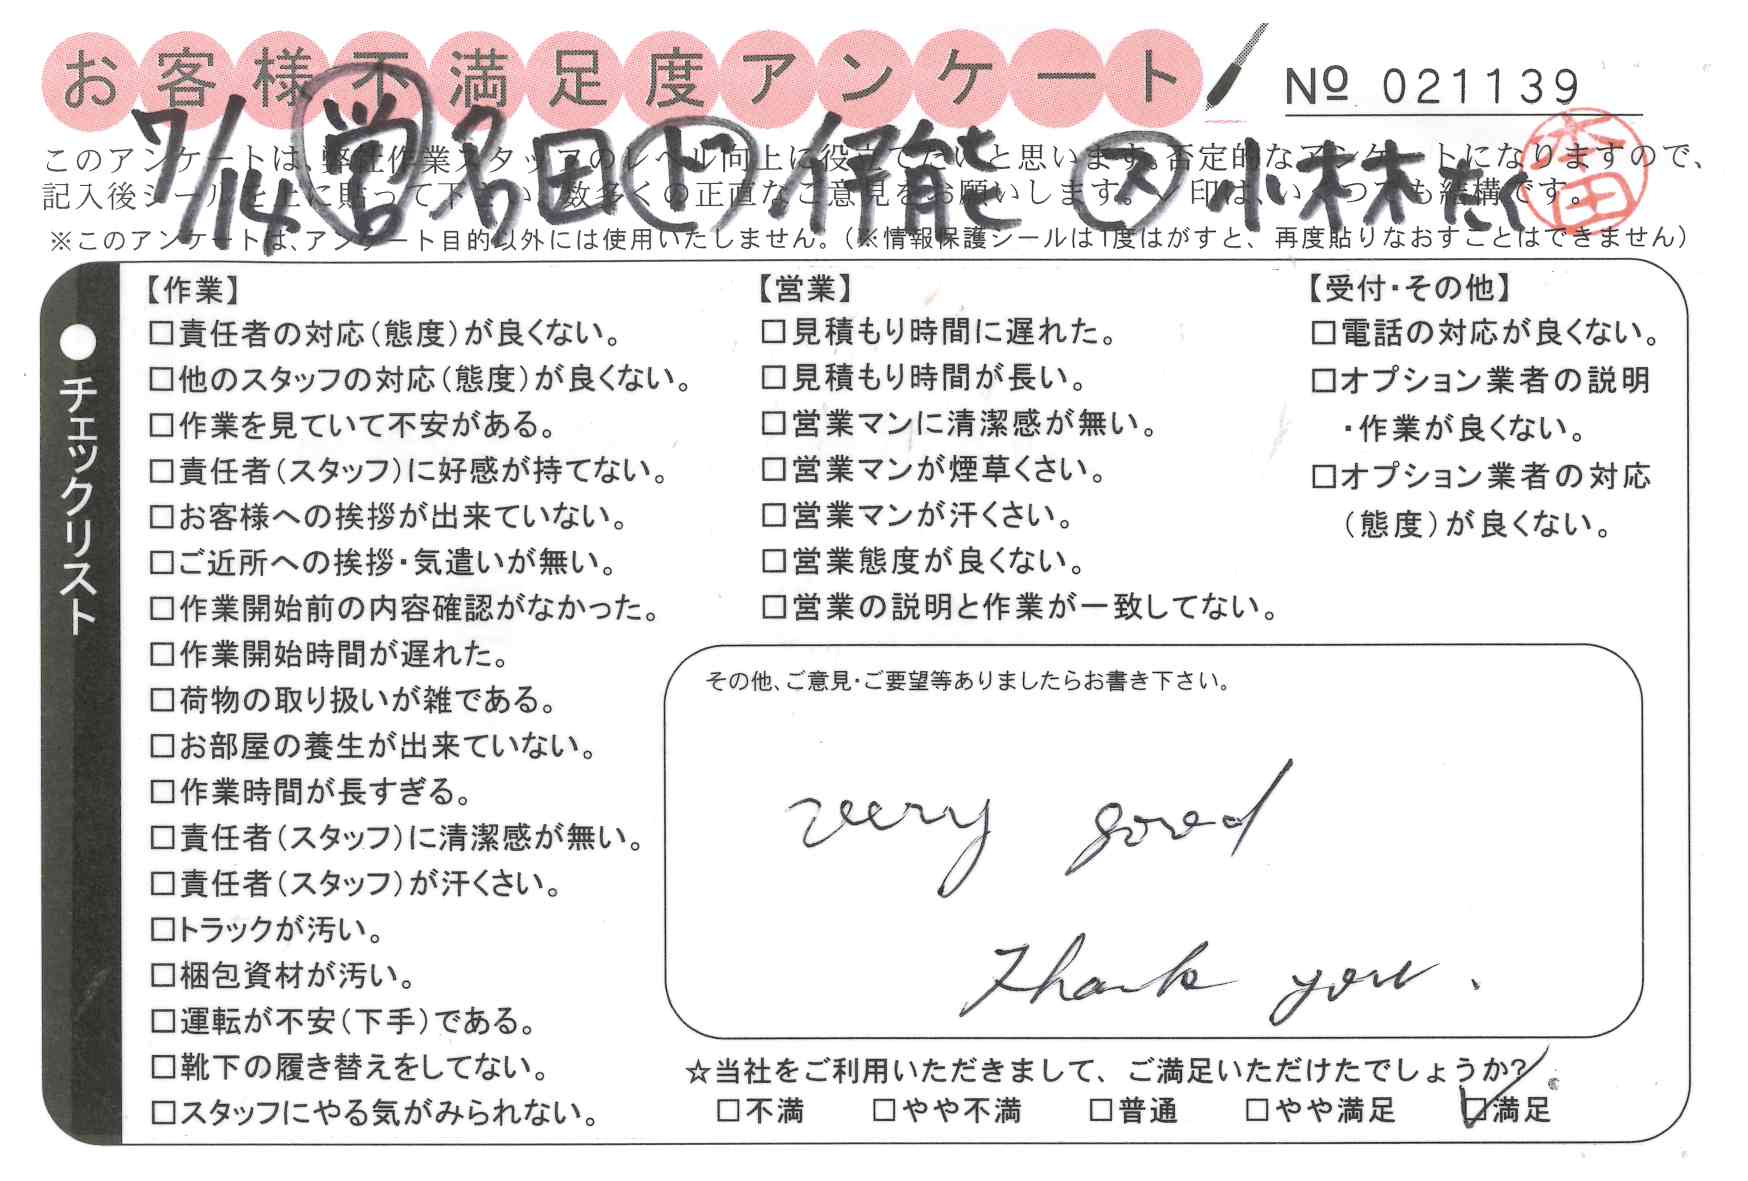 お客様不満足度アンケート
Nº 021139
7/14 営 名田 ド 伊能 ス 小林
本田
このアンケートは、弊社作業スタッフのレベル向上に役立てたいと思います。否定的なアンケートになりますので、
記入後シールを上に貼って下さい。数多くの正直なご意見をお願いします。✓印は、いくつでも結構です。
※このアンケートは、アンケート目的以外には使用いたしません。（※情報保護シールは1度はがすと、再度貼りなおすことはできません）
●チェックリスト
【作業】
□責任者の対応（態度）が良くない。
□他のスタッフの対応（態度）が良くない。
□作業を見ていて不安がある。
□責任者（スタッフ）に好感が持てない。
□お客様への挨拶が出来ていない。
□ご近所への挨拶・気遣いが無い。
□作業開始前の内容確認がなかった。
□作業開始時間が遅れた。
□荷物の取り扱いが雑である。
□お部屋の養生が出来ていない。
□作業時間が長すぎる。
□責任者（スタッフ）に清潔感が無い。
□責任者（スタッフ）が汗くさい。
□トラックが汚い。
□梱包資材が汚い。
□運転が不安（下手）である。
□靴下の履き替えをしてない。
□スタッフにやる気がみられない。
【営業】
□見積もり時間に遅れた。
□見積もり時間が長い。
□営業マンに清潔感が無い。
□営業マンが煙草くさい。
□営業マンが汗くさい。
□営業態度が良くない。
□営業の説明と作業が一致してない。
【受付・その他】
□電話の対応が良くない。
□オプション業者の説明
・作業が良くない。
□オプション業者の対応
（態度）が良くない。
その他、ご意見・ご要望等ありましたらお書き下さい。
very good
Thank you.
☆当社をご利用いただきまして、ご満足いただけたでしょうか?
□不満 □やや不満 □普通 □やや満足 ☑満足